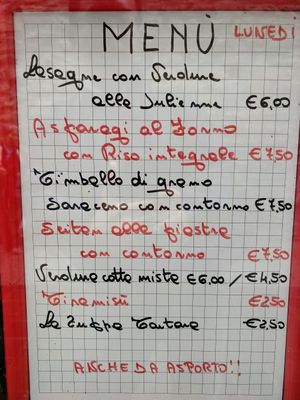 MENÙ LUNEDI
Lasagne con Verdure
alla Julienne €6,00
Asparagi al Forno
con Riso integrale €7,50
Timballo di grano
Saraceno con contorno €7,50
Seitan alla piastra
con contorno €7,50
Verdure cotte miste €6,00 / €4,50
Tiramisù €2,50
La Zuppa Tartara €2,50
ANCHE DA ASPORTO!!